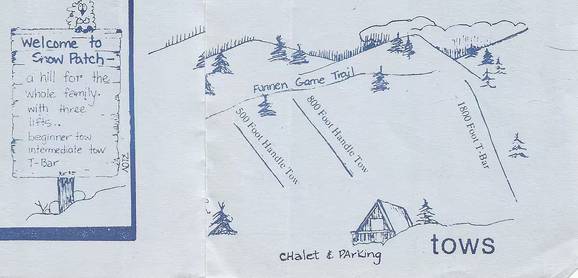 Welcome to
Snow Patch
a hill for the
whole family.
with three
lifts..
beginner tow
intermediate tow
T-Bar
Funnen Game Trail
500 Foot Handle Tow
800 Foot Handle Tow
1800 Foot T-Bar
CHalet & PArking
tows